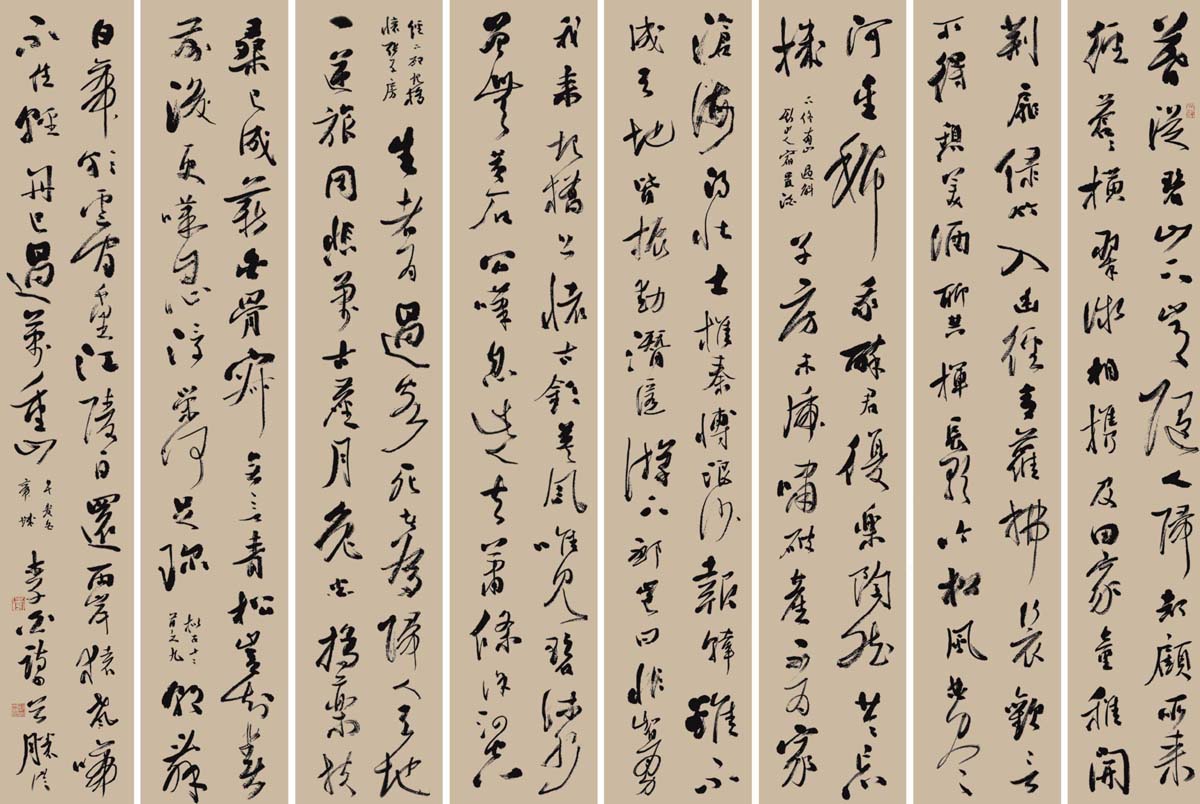 暮從碧山下山月隨人歸却顧所來
徑蒼蒼橫翠微相攜及田家童稚開
荆扉綠竹入幽徑青蘿拂行衣歡言
所得憩美酒聊共揮長歌吟松風曲盡
河星稀我醉君復樂陶然共忘
機
下終南山過斛
斯山人宿置酒
子房未虎嘯破產不為家
滄海得壯士椎秦博浪沙報韓雖不
成天地皆振動潛匿游下邳豈曰非智勇
我來圯橋上懷古欽英風唯見碧流水
曾無黃石公嘆息此人去蕭條徐泗空
經下邳圯橋
懷張子房
生者為過客死者為歸人天地
一逆旅同悲萬古塵月兔空搗藥扶
桑已成薪白骨寂無言青松豈知春
前後更嘆息浮榮何足珍
擬古十二
首之九
朝辭
白帝彩雲間千里江陵一日還兩岸猿聲啼
不住輕舟已過萬重山
李白詩